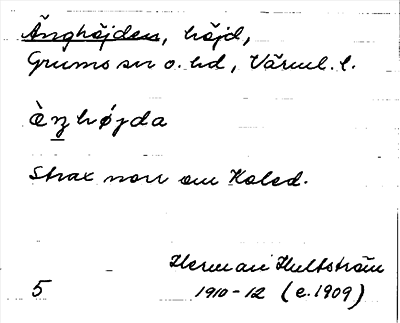 Änghöjden, höjd,
Grums sn o. hd, Värml. l.
èŋhøjda
Strax norr om Kolsd.
Herman Hultström
5 1910-12 (e. 1909)